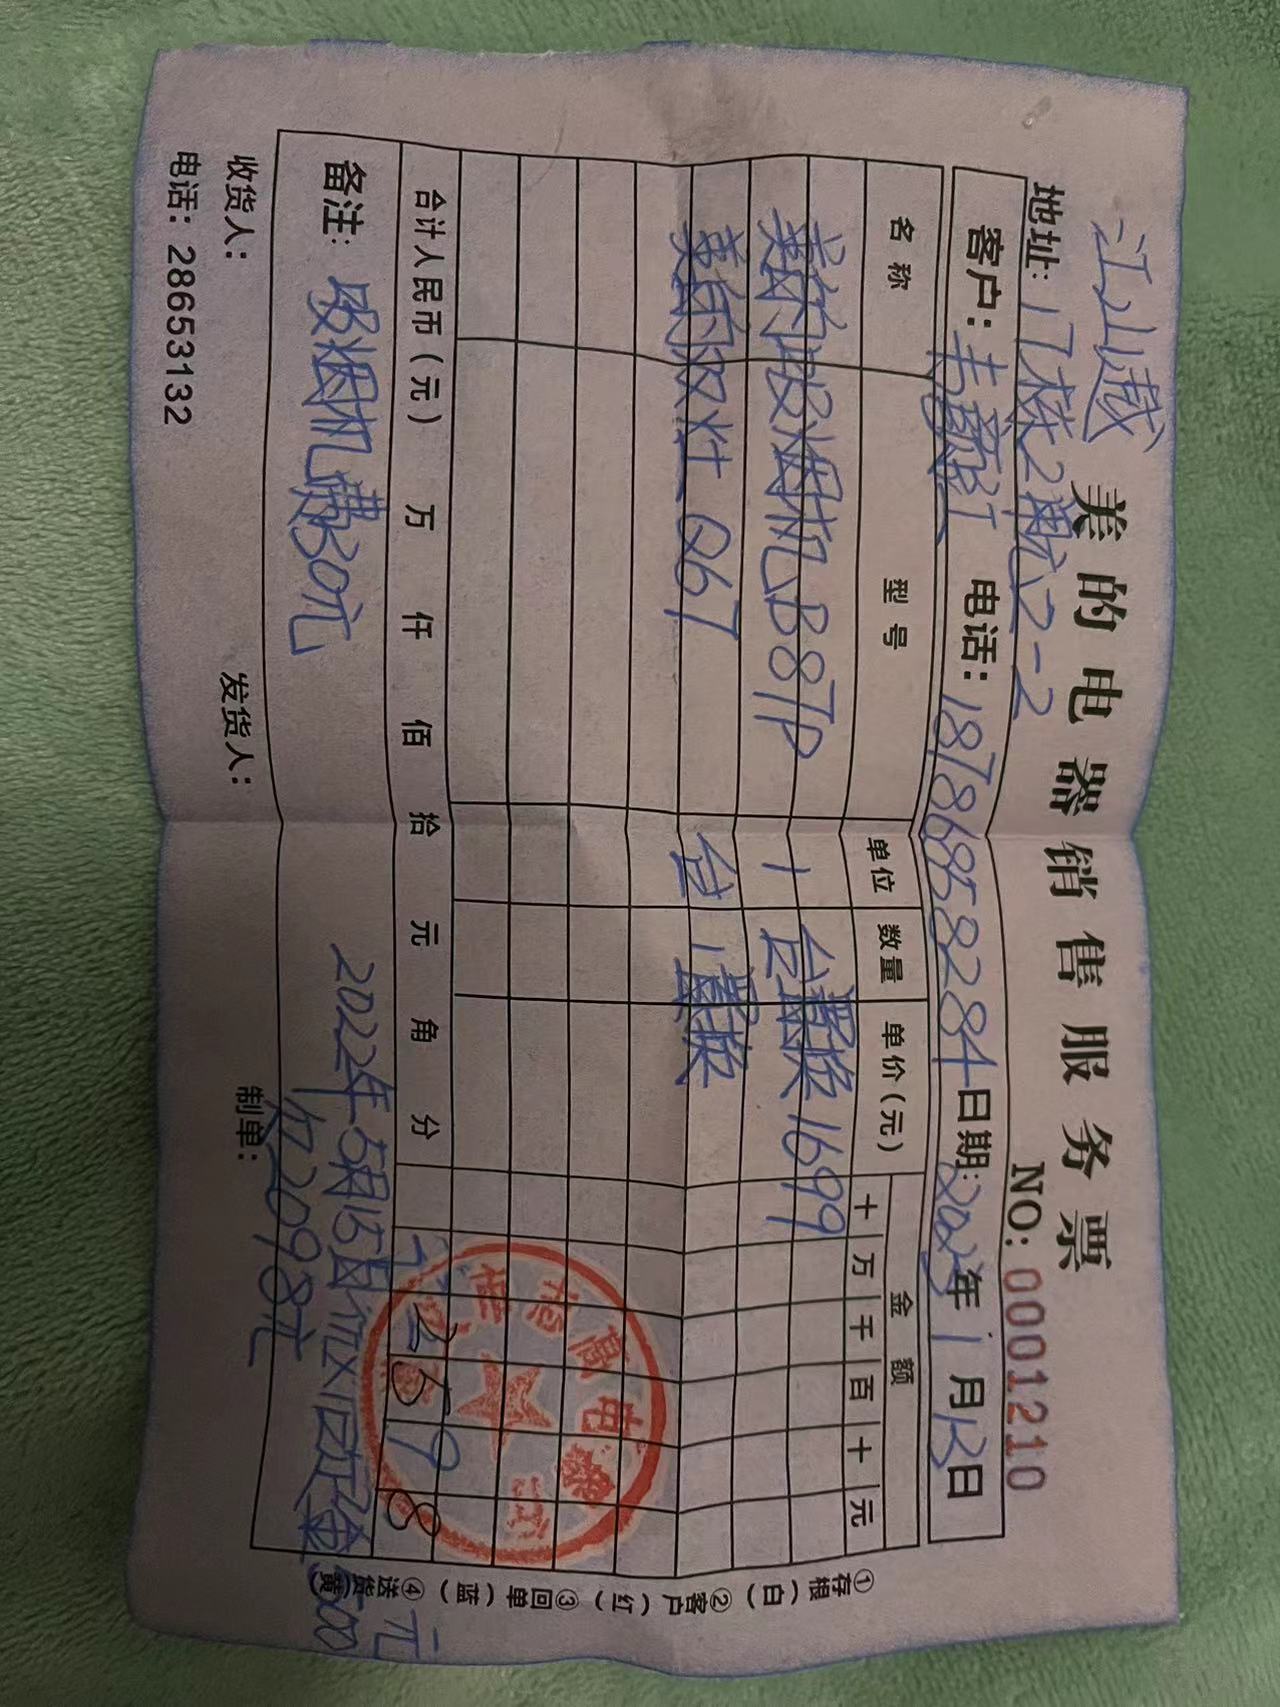 江山崴
美的电器销售服务票
地址: 17栋2单元2-2
NO: 0001210
客户: 电话: 18786958284 日期: 年1月13日
名称 型号 单位 数量 单价(元) 金额
十 万 千 百 十 元
美的吸烟机B87P 1 台置换1699
美的双灶Q67 台 1 置换
合计人民币(元) 万 仟 佰 拾 元 角 分 2598
备注: 吸烟机费30元
2022年5月15日 500元
欠2098元
收货人: 发货人: 制单:
电话: 28653132
①存根(白) ②客户(红) ③回单(蓝) ④送货(黄)